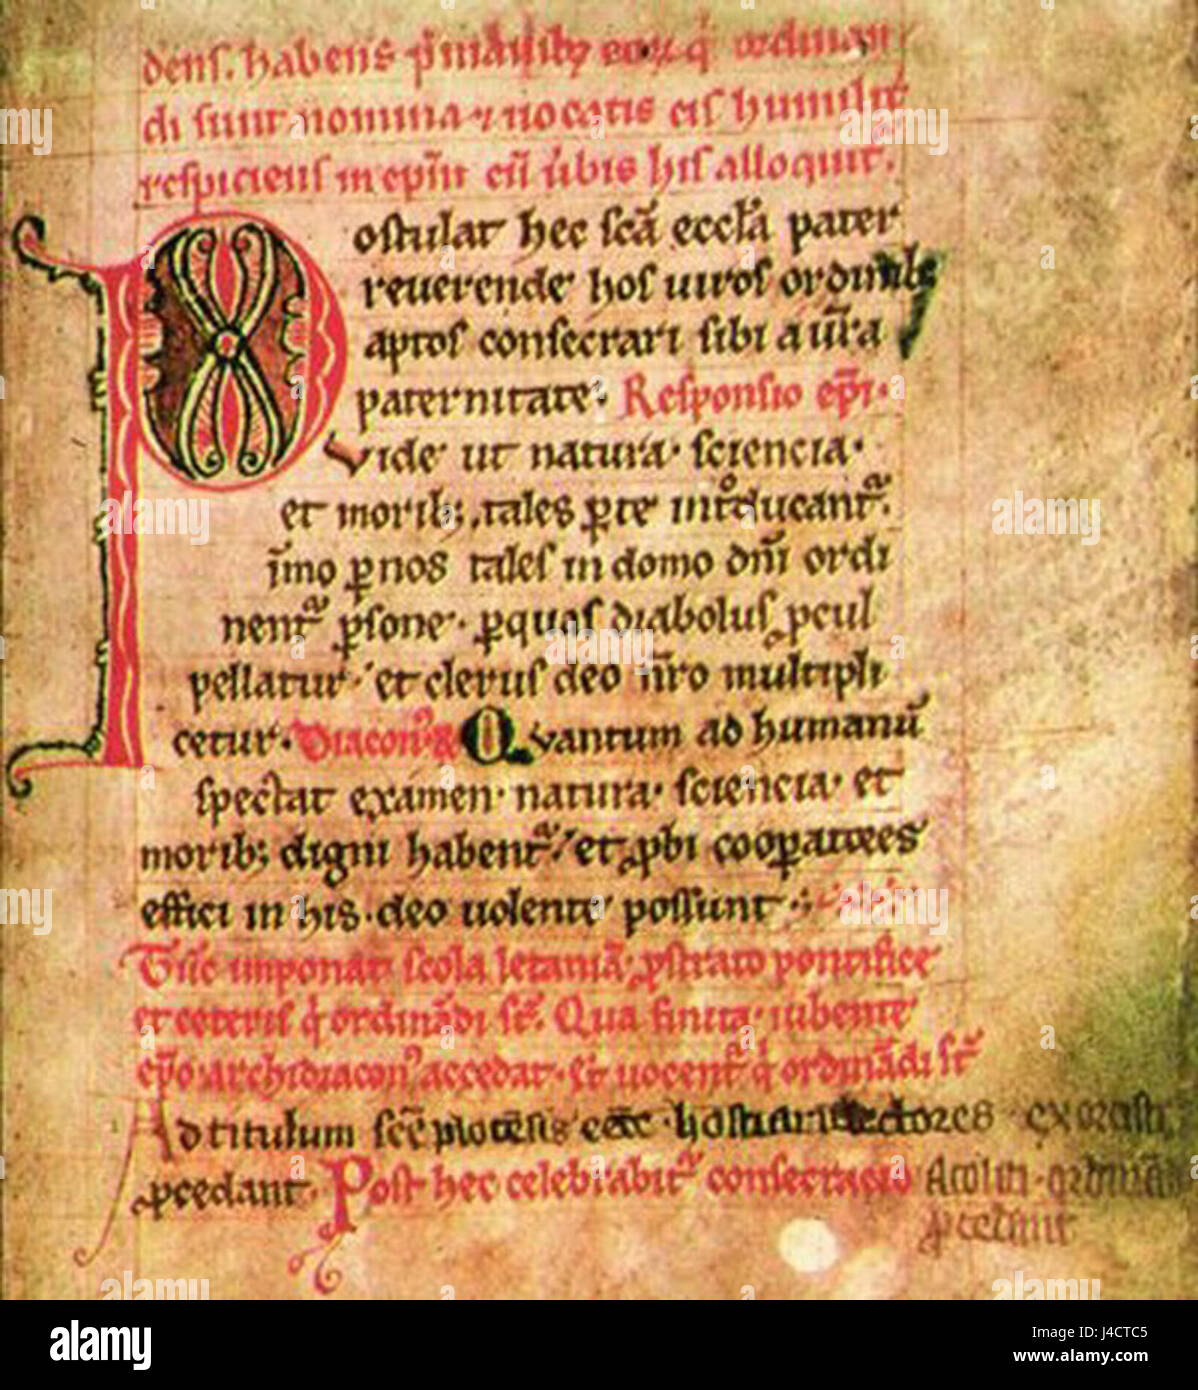 dens. habens p̄ manibꝫ eoꝝ q̇ ordinan
di sunt nomina ⁊ uocatis eis humilit͛
respiciens in ep̄m cū ūbis his alloquit᷑.
Postulat hec sc̄a eccl̄a pater
reuerende hos uiros ordinibꝫ
aptos consecrari sibi a ur̄a
paternitate. Responsio ep̄i.
Vide ut natura. sciencia.
et moribꝫ. tales ꝑ te introducant᷑.
īmo ꝑ nos tales in domo dn̄i ordi
nent᷑ ꝑsone. ꝑ quos diabolus ꝓcul
pellatur. et clerus deo nr̄o multipli
cetur. Diaconꝰ Quantum ad humanū
spectat examen. natura. sciencia. et
moribꝫ digni habent᷑. et ꝓbi cooꝑatores
effici in his. deo uolente possunt.
Tūc imponat scola letaniā. ꝓstrato pontifice
et ceteris q̇ ordinādi st̄. Qua finita. iubente
ep̄o archidiaconꝰ accedat. et uocent᷑ q̇ ordinādi st̄
Ad titulum sc̄e hostiarii lectores exorcist
ꝓcedant. Post hec celebrabit᷑ consecracio Acoliti. ordinā
ꝓcedant
alamy
Image ID: J4CTC5
www.alamy.com